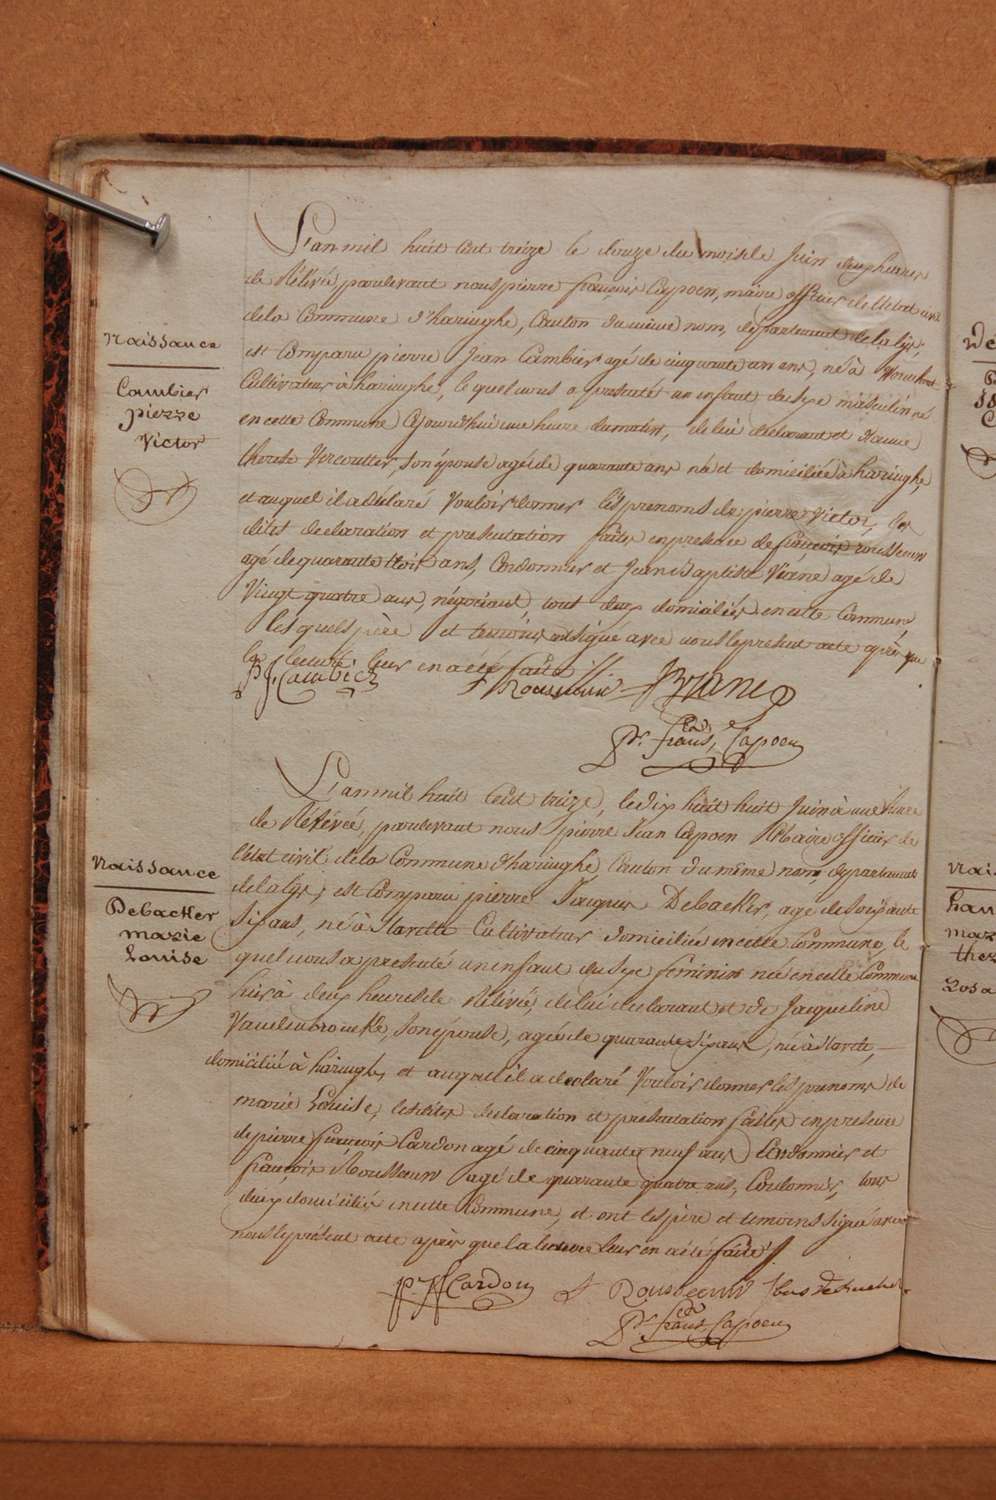 L'an mil huit Cent treize le douze du mois de Juin deux heures
de Rélévée pardevant nous pierre françois Capoen, maire officier de l'état civil
de la Commune d'haringhe, Canton du même nom, département de la lijs,
est Comparu pierre Jean Cambier agé de cinquante un ans, né à
Cultivateur à haringhe, lequel nous a presenté un enfant du sexe masculin né
en cette Commune Cejourd'hui une heure du matin, de lui déclarant et d'anne
therese Vercoutter, son épouse agée de quarante ans née et domiciliée à haringhe,
et auquel il a déclaré Vouloir donner les prenoms de pierre Victor, les
dites declaration et presentation faites en presence de françois rousseeuw
agé de quarante trois ans, Cordonnier et Jean Baptiste Briane agé de
Vingt quatre ans, négociant, tous deux domiciliés en cette Commune,
les quels père et temoins ont signé avec nous le present acte après que
la lecture leur en a été faite
Naissance
Cambier
pierre
Victor
P J Cambier
F Rousseeuw
Briane
Pr. frans, Capoen
L'an mil huit Cent treize, le dix huit Juin à une heure
de Rélévée, pardevant nous pierre Jean Capoen Maire officier de
l'état civil de la Commune d'haringhe Canton du même nom, département
de la lijs, est Comparu pierre Jacques Debacker, agé de soixante
six ans, né à Starelle Cultivateur domicilié en cette Commune, le
quel nous a presenté un enfant du sexe feminin née en cette Commune
hier à deux heures de Rélévée, de lui declarant et de Jacqueline
Vandenbroucke, son épouse, agée de quarante six ans, née à
domicilié à haringhe, et auquel il a declaré Vouloir donner les prenoms de
marie Louise, les dites declaration et presentation faites en presence
de pierre françois Cardon agé de cinquante neuf ans Cordonnier et
françois Rousseeuw agé de quarante quatre ans, Cordonnier, tous
deux domiciliés en cette Commune, et ont les père et temoins signé avec
nous le présent acte après que la lecture leur en a été faite
Naissance
Debacker
marie
Louise
P. F Cardon
F Rousseeuw
Pr. frans, Capoen